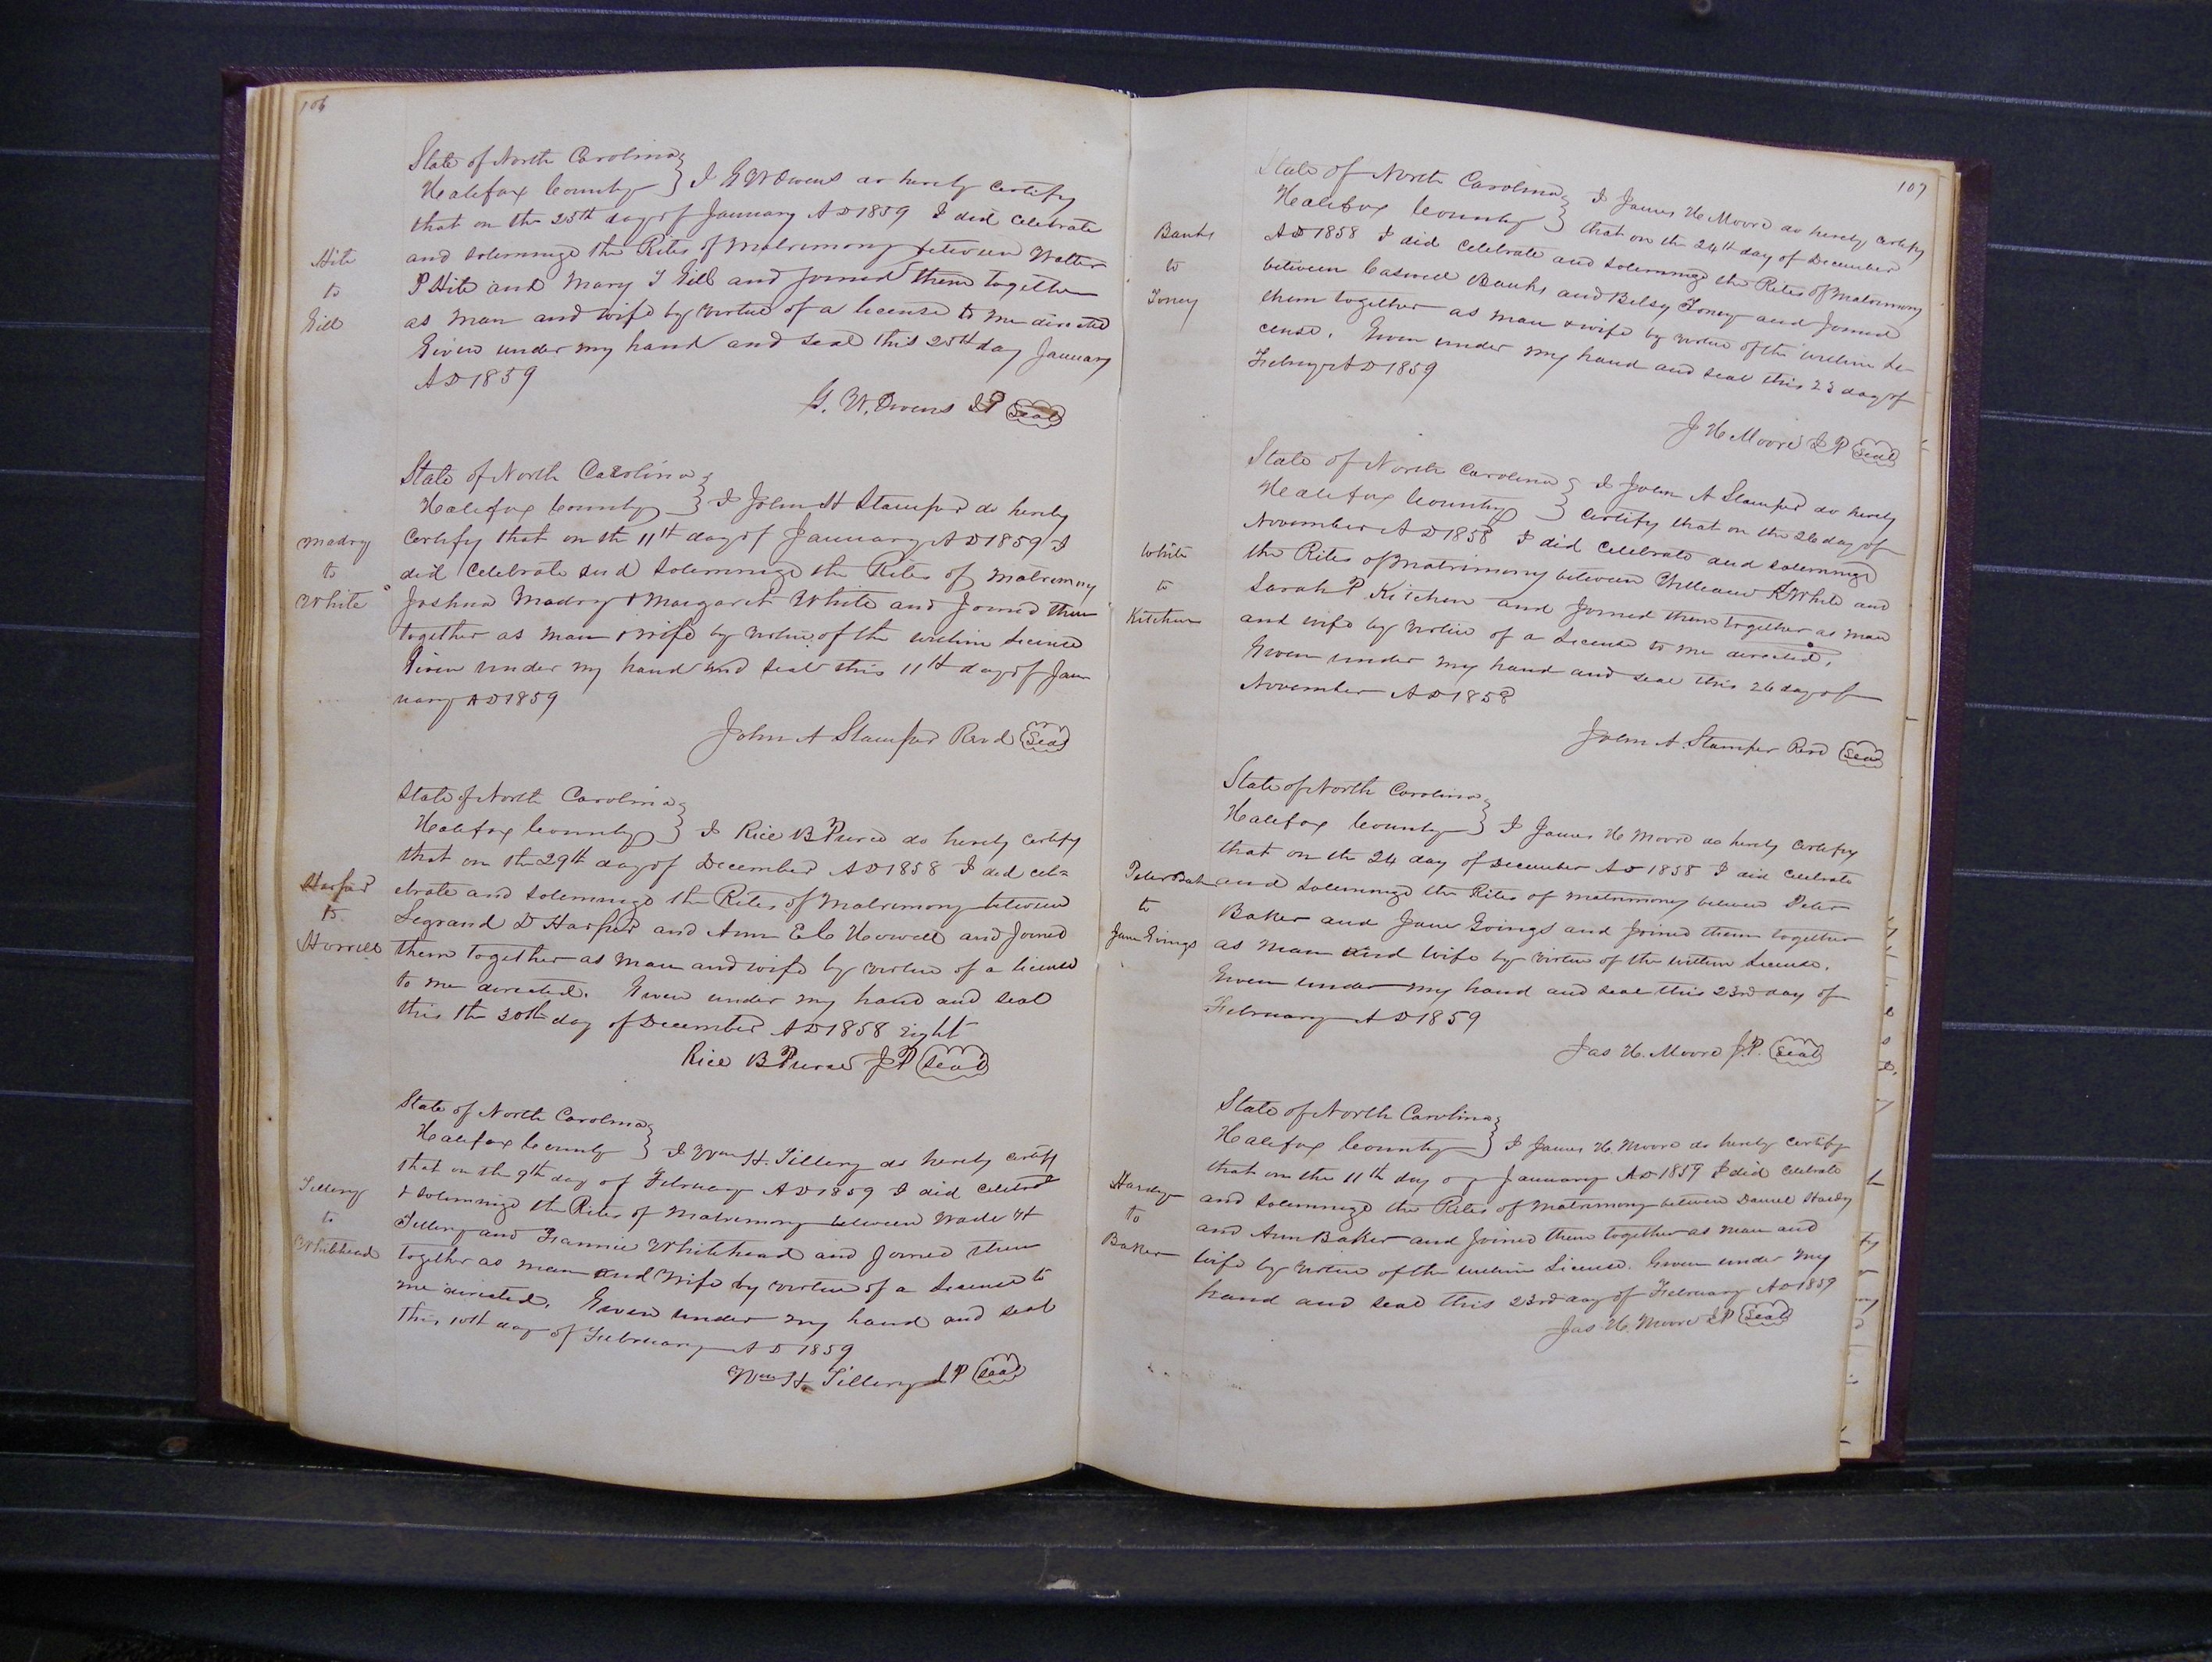 106
State of North Carolina
Halifax County } I G W Owens do hereby certify
that on the 25th day of January AD 1859 I did celebrate
and solemnize the Rites of Matrimony between Walter
Hite
to
Gill
P Hite and Mary J Gill and joined them together
as man and wife by virtue of a license to me directed
Given under my hand and seal this 25th day January
AD 1859
G. W. Owens JP Seal
State of North Carolina
Halifax County } I John A Stamper do hereby
certify that on the 11th day of January AD 1859 I
did celebrate and solemnize the Rites of Matrimony
Madry
to
White
Joshua Madry & Margaret White and Joined them
together as man & wife by virtue of the within License
Given under my hand and seal this 11th day of Jan
uary AD 1859
John A Stamper Revd Seal
State of North Carolina
Halifax County } I Rice B Pierce do hereby certify
that on the 29th day of December AD 1858 I did cele=
ebrate and solemnize the Rites of Matrimony between
Harper
to
Legrand D Harper and Ann E C Howell and Joined
them together as man and wife by virtue of a license
to me directed. Given under my hand and seal
this the 30th day of December AD 1858 eight
Rice B Pierce JP Seal
State of North Carolina
Halifax County } I Wm H. Tillery do hereby certify
that on the 9th day of February AD 1859 I did celebrate
& solemnize the Rites of Matrimony between Wade H
Tillery
to
Whitehead
Tillery and Fannie Whitehead and Joined them
together as man and Wife by virtue of a License to
me directed. Given under my hand and seal
this 10th day of February AD 1859
Wm H. Tillery JP Seal
107
State of North Carolina
Halifax County } I James H Moore do hereby certify
that on the 24th day of December
AD 1858 I did celebrate and solemnize the Rites of Matrimony
Banks
to
Toney
between Caswell Banks and Betsy Toney and Joined
them together as man & wife by virtue of the within Li-
cense. Given under my hand and seal this 23 day of
Febuy AD 1859
J H Moore JP Seal
State of North Carolina
Halifax County } I John A Stamper do hereby
certify that on the 26 day of
November AD 1858 I did celebrate and solemnize
White
to
Kitchen
the Rites of Matrimony between William White and
Sarah P Kitchen and Joined them together as man
and wife by virtue of a License to me directed.
Given under my hand and seal this 26 day of
November AD 1858
John A. Stamper Revd Seal
State of North Carolina
Halifax County } I James H Moore do hereby certify
that on the 24 day of December AD 1858 I did celebrate
Peter Baker
to
Jane Goings
and solemnize the Rites of matrimony between Peter
Baker and Jane Goings and Joined them together
as man and wife by virtue of the within License.
Given under my hand and seal this 23rd day of
February AD 1859
Jas H. Moore J.P. Seal
State of North Carolina
Halifax County } I James H. Moore do hereby certify
that on the 11th day of January AD 1859 I did celebrate
Hardy
to
Baker
and solemnize the Rites of Matrimony between Daniel Hardy
and Ann Baker and Joined them together as man and
wife by virtue of the within License. Given under my
hand and seal this 23rd day of February AD 1859
Jas H. Moore JP Seal